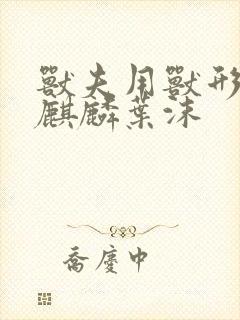 獸夫用獸形
麒麟葉沫
喬慶中